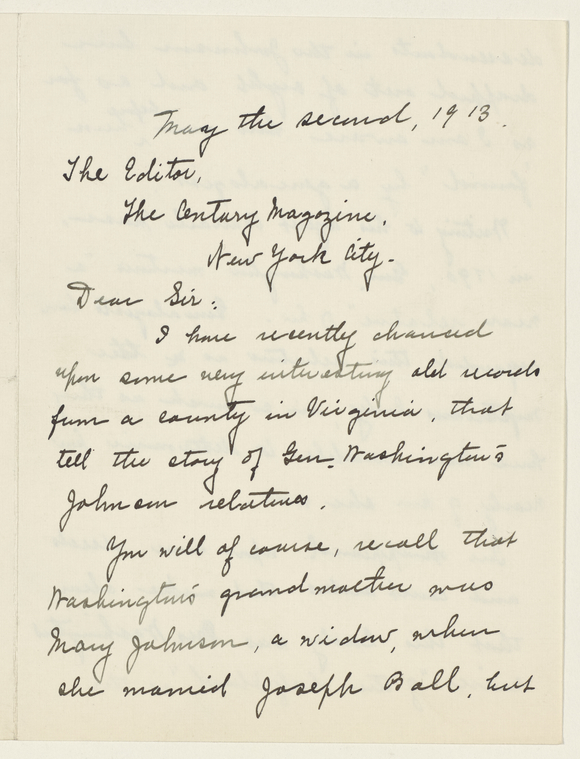 May the second, 1913.
The Editor,
The Century Magazine,
New York City-
Dear Sir:
I have recently chanced
upon some very interesting old records
from a county in Virginia, that
tell the story of Gen. Washington's
Johnson relatives.
You will of course, recall that
Washington's grandmother was
Mary Johnson, a widow, when
she married Joseph Ball, but